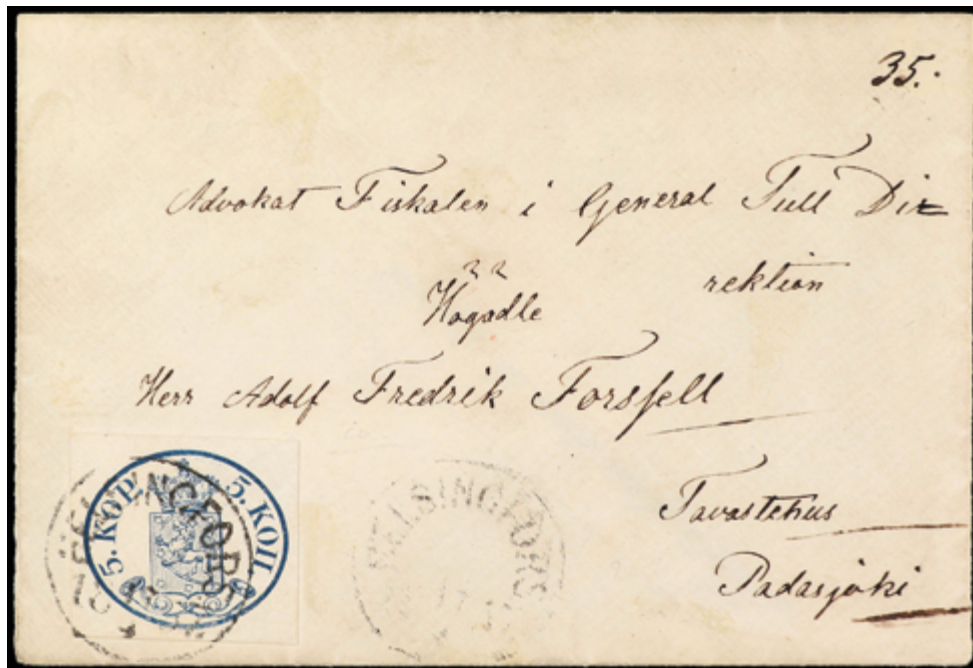 35.
Advokat Fiskalen i General Tull Di=
rektion
Högädle
Herr Adolf Fredrik Forssell
Tavastehus
Padasjoki
5. KOP. 5. КОП.
HELSINGFORS
HELSINGFORS